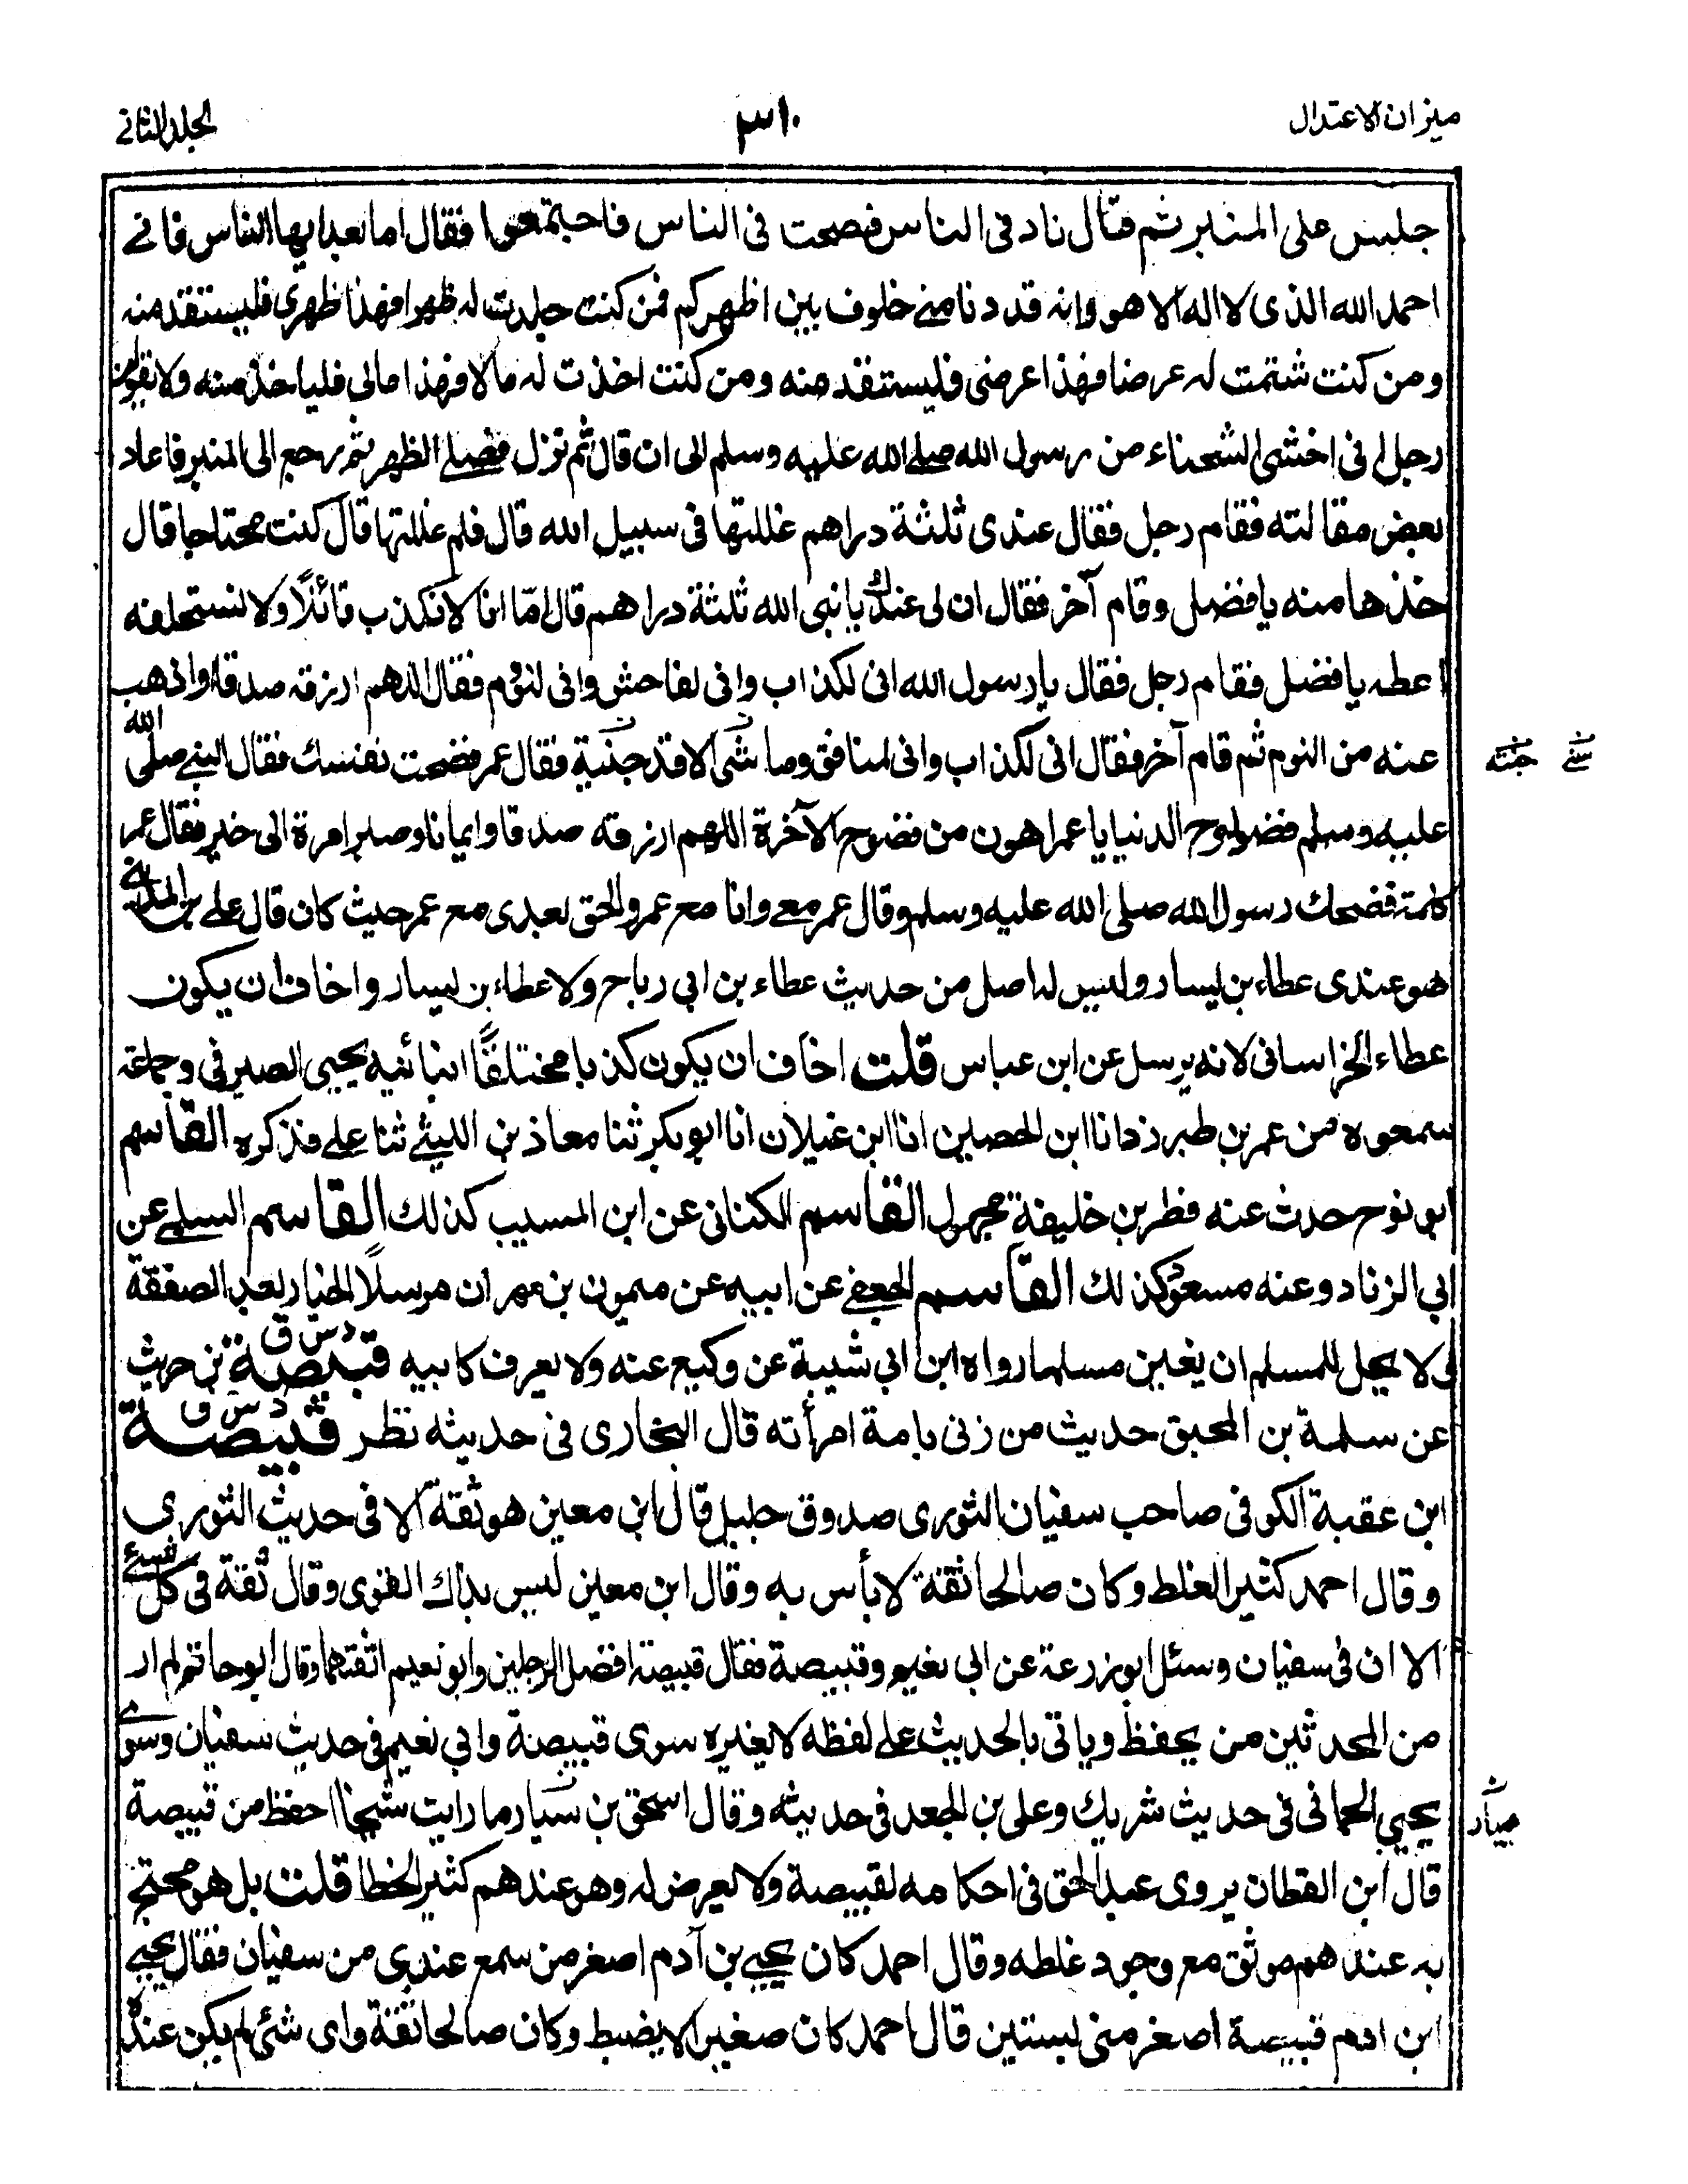 ميزان الاعتدال
٣١٠
الجلد الثاني
جلس على المنبر ثم قال ناد فى الناس فصحت فى الناس فاجتمعوا فقال اما بعد ايها الناس فانى
احمد الله الذى لا اله الا هو وانه قد دنا منى خلوف بين اظهركم فمن كنت جلدت له ظهرا فهذا ظهرى فليستقد منه
ومن كنت شتمت له عرضا فهذا عرضى فليستقد منه ومن كنت اخذت له مالا فهذا مالى فلياخذ منه ولا يقولن
رجل انى اخشى الشحناء من رسول الله صلى الله عليه وسلم الى ان قال ثم نزل فصلى الظهر ثم رجع الى المنبر فاعاد
بعض مقالته فقام رجل فقال عندى ثلثة دراهم غللتها فى سبيل الله قال فلم غللتها قال كنت محتاجا قال
خذها منه يا فضل وقام آخر فقال ان لى عندك يا نبى الله ثلثة دراهم قال امّا انا لا نكذب قائلاً ولا نستحلفه
اعطه يا فضل فقام رجل فقال يا رسول الله انى لكذاب وانى لفاحش وانى لنؤم فقال اللهم ارزقه صدقا واذهب
عنه من النوم ثم قام آخر فقال انى لكذاب وانى لمنافق وما شئ الا قد جنيته فقال عمر فضحت نفسك فقال النبى صلى الله
عليه وسلم فضوح الدنيا يا عمر اهون من فضوح الآخرة اللهم ارزقه صدقا وايمانا وصير امرة الى خير فقال عمر
كلمة فضحك رسول الله صلى الله عليه وسلم وقال عمر معى وانا مع عمر والحق بعدى مع عمر حيث كان قال على بن المدينى
هو عندى عطاء بن يسار وليس له اصل من حديث عطاء بن ابي رباح ولا عطاء بن يسار واخاف ان يكون
عطاء الخراسانى لانه يرسل عن ابن عباس قلت اخاف ان يكون كذبا مختلقاً انبائيه يحيى الصيرفى وجماعة
سمعوه من عمر بن طبرزد انا ابن الحصين انا ابن غيلان انا ابو بكر ثنا معاذ بن الليثى ثنا على فذكره القاسم
ابو نوح حدث عنه فطر بن خليفة مجهول القاسم الكنانى عن ابن المسيب كذلك القاسم السلمى عن
ابي الزناد وعنه مسعر كذلك القاسم الجعفى عن ابيه عن ميمون بن مهران مرسلاً الخيار بعد الصفقة
فى لا يحل للمسلم ان يغبن مسلما رواه ابن ابي شيبة عن وكيع عنه ولا يعرف كابيه قبيصة بن حريث
عن سلمة بن المحبق حديث من زنى بامة امرأته قال البخارى فى حديثه نظر قبيصة
ابن عقبة الكوفى صاحب سفيان الثورى صدوق جليل قال ابن معين هو ثقة الا فى حديث الثورى
وقال احمد كثير الغلط وكان صالحا ثقة لا بأس به وقال ابن معين ليس بذاك القوى وقال ثقة فى كل شئ
الا ان فى سفيان وسئل ابو زرعة عن ابى نعيم وقبيصة فقال قبيصة افضل الرجلين وابو نعيم اتقنهما وقال ابو حاتم لم ار
من المحدثين من يحفظ وياتى بالحديث على لفظه لا يغيره سوى قبيصة وابي نعيم فى حديث سفيان وسوى
يحيى الحمانى فى حديث شريك وعلى بن الجعد فى حديثه وقال اسحق بن سيار ما رايت شيخا احفظ من قبيصة
قال ابن القطان يروى عبد الحق فى احكامه لقبيصة ولا يعرض له وهو عندهم كثير الخطا قلت بل هو محتج
به عندهم موثق مع وجود غلطه وقال احمد كان يحيى بن آدم اصغر من سمع عندى من سفيان فقال يحيى
ابن ادم قبيصة اصغر منى بسنتين قال احمد كان صغيرا لا يضبط وكان صالحا ثقة واى شئ لم يكن عنده